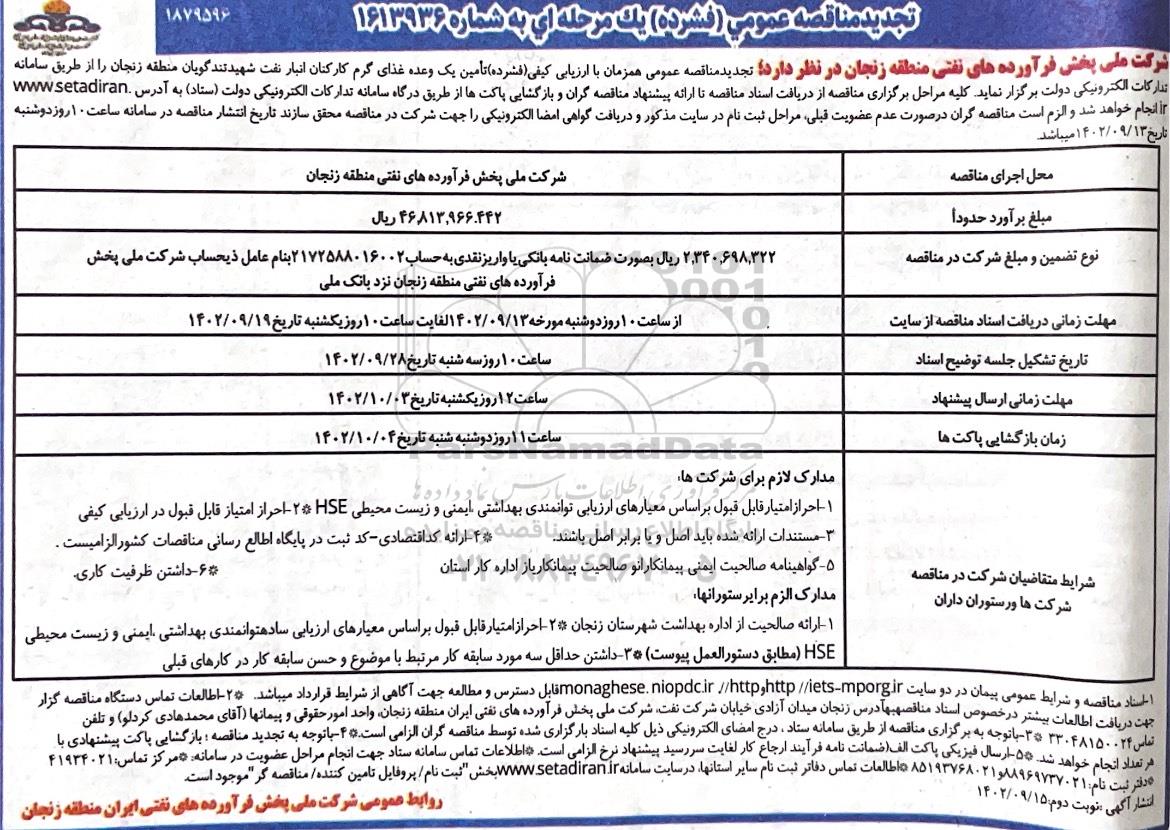 تجدیدمناقصه عمومی (فشرده) یک مرحله ای به شماره ۱۶۱۳۹۳۶
۱۸۷۹۵۹۶
شرکت ملی پخش فرآورده های نفتی منطقه زنجان در نظر دارد؛ تجدیدمناقصه عمومی همزمان با ارزیابی کیفی(فشرده)تأمین یک وعده غذای گرم کارکنان انبار نفت شهیدتندگویان منطقه زنجان را از طریق سامانه
تدارکات الکترونیکی دولت برگزار نماید. کلیه مراحل برگزاری مناقصه از دریافت اسناد مناقصه تا ارائه پیشنهاد مناقصه گران و بازگشایی پاکت ها از طریق درگاه سامانه تدارکات الکترونیکی دولت (ستاد) به آدرس www.setadiran.
ir انجام خواهد شد و الزم است مناقصه گران درصورت عدم عضویت قبلی، مراحل ثبت نام در سایت مذکور و دریافت گواهی امضا الکترونیکی را جهت شرکت در مناقصه محقق سازند تاریخ انتشار مناقصه در سامانه ساعت ۱۰روزدوشنبه
تاریخ۱۴۰۲/۰۹/۱۳میباشد.
محل اجرای مناقصه
شرکت ملی پخش فرآورده های نفتی منطقه زنجان
مبلغ برآورد حدوداً
۴۶,۸۱۳,۹۶۶.۴۴۲ ریال
نوع تضمین و مبلغ شرکت در مناقصه
۲,۳۴۰,۶۹۸,۳۲۲ ریال بصورت ضمانت نامه بانکی یا واریزنقدی به حساب۲۱۷۲۵۸۸۰۱۶۰۰۲بنام عامل ذیحساب شرکت ملی پخش
فرآورده های نفتی منطقه زنجان نزد بانک ملی
مهلت زمانی دریافت اسناد مناقصه از سایت
از ساعت ۱۰روزدوشنبه مورخه ۱۴۰۲/۰۹/۱۳لغایت ساعت ۱۰روزیکشنبه تاریخ۱۴۰۲/۰۹/۱۹
تاریخ تشکیل جلسه توضیح اسناد
ساعت۱۰روزسه شنبه تاریخ۱۴۰۲/۰۹/۲۸
مهلت زمانی ارسال پیشنهاد
ساعت۱۲روزیکشنبه تاریخ۱۴۰۲/۱۰/۰۳
زمان بازگشایی پاکت ها
ساعت۱۱روزدوشنبه شنبه تاریخ۱۴۰۲/۱۰/۰۴
شرایط متقاضیان شرکت در مناقصه
شرکت ها ورستوران داران
مدارک لازم برای شرکت ها:
۱-احرازامتیازقابل قبول براساس معیارهای ارزیابی توانمندی بهداشتی ،ایمنی و زیست محیطی HSE *۲-احراز امتیاز قابل قبول در ارزیابی کیفی
۳-مستندات ارائه شده باید اصل و یا برابر اصل باشند. *۴-ارائه کداقتصادی-کد ثبت در پایگاه اطالع رسانی مناقصات کشورالزامیست .
۵-گواهینامه صالحیت ایمنی پیمانکارانو صالحیت پیمانکاریاز اداره کار استان *۶-داشتن ظرفیت کاری.
مدارک الزم برایرستورانها:
۱-ارائه صالحیت از اداره بهداشت شهرستان زنجان *۲-احرازامتیازقابل قبول براساس معیارهای ارزیابی سادهتوانمندی بهداشتی ،ایمنی و زیست محیطی
HSE (مطابق دستورالعمل پیوست) *۳-داشتن حداقل سه مورد سابقه کار مرتبط با موضوع و حسن سابقه کار در کارهای قبلی
۱-اسناد مناقصه و شرایط عمومی پیمان در دو سایت http //iets-mporg.irوhttp// monaghese. niopdc.ir.قابل دسترس و مطالعه جهت آگاهی از شرایط قرارداد میباشد. *۲-اطالعات تماس دستگاه مناقصه گزار
جهت دریافت اطالعات بیشتر درخصوص اسناد مناقصهبهآدرس زنجان میدان آزادی خیابان شرکت نفت، شرکت ملی پخش فرآورده های نفتی ایران منطقه زنجان، واحد امورحقوقی و پیمانها (آقای محمدهادی کردلو) و تلفن
تماس۳۳۰۴۸۱۵۰۰۲۴ *۳-باتوجه به برگزاری مناقصه از طریق سامانه ستاد ، درج امضای الکترونیکی ذیل کلیه اسناد بارگزاری شده توسط مناقصه گران الزامی است.*۴-باتوجه به تجدید مناقصه ؛ بازگشایی پاکت پیشنهادی با
هر تعداد انجام خواهد شد. *۵-ارسال فیزیکی پاکت الف(ضمانت نامه فرآیند ارجاع کار لغایت سررسید پیشنهاد نرخ الزامی است. *اطلاعات تماس سامانه ستاد جهت انجام مراحل عضویت در سامانه: *مرکز تماس:۴۱۹۳۴۰۲۱
*دفتر ثبت نام:۸۸۹۶۹۷۳۷۰۲۱و۸۵۱۹۳۷۶۸۰۲۱ *اطلاعات تماس دفاتر ثبت نام سایر استانها، درسایت سامانهwww.setadiran.irبخش"ثبت نام/ پروفایل تامین کننده/ مناقصه گر"موجود است.
انتشار آگهی :نوبت دوم:۱۴۰۲/۰۹/۱۵
روابط عمومی شرکت ملی پخش فرآورده های نفتی ایران منطقه زنجان
ParsNamadData
مرکز فرآوری اطلاعات پارس نماد داده ها
پایگاه اطلاع رسانی مناقصه و مزایده
۰۲۱-۸۸۳۴۹۶۷۰-۵